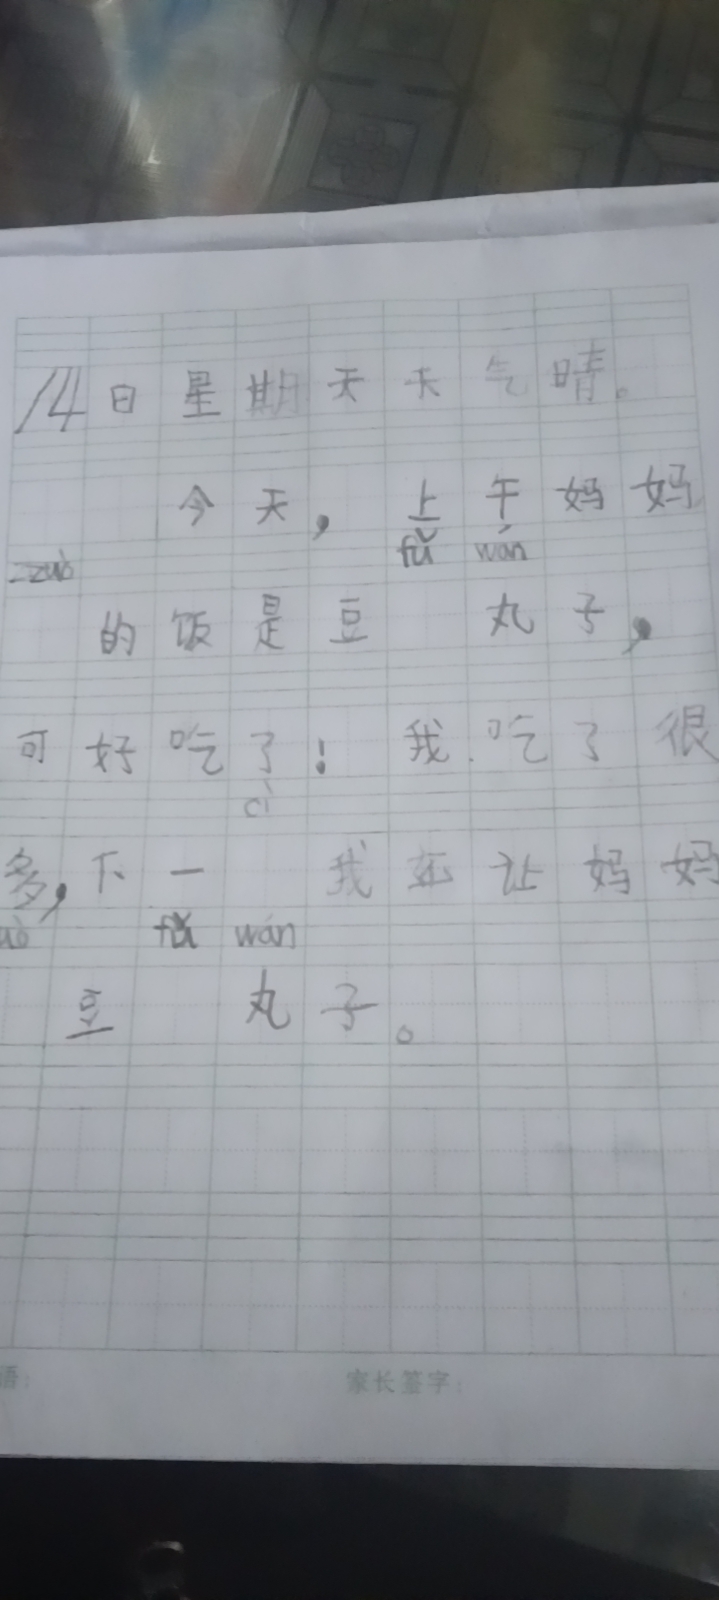 14日星期天天气晴。
今天,上午妈妈
zuò fǔ wán
的饭是豆 丸子,
可好吃了!我吃了很
cì
多,下一 我还让妈妈
fǔ wán
豆 丸子。
家长签字: